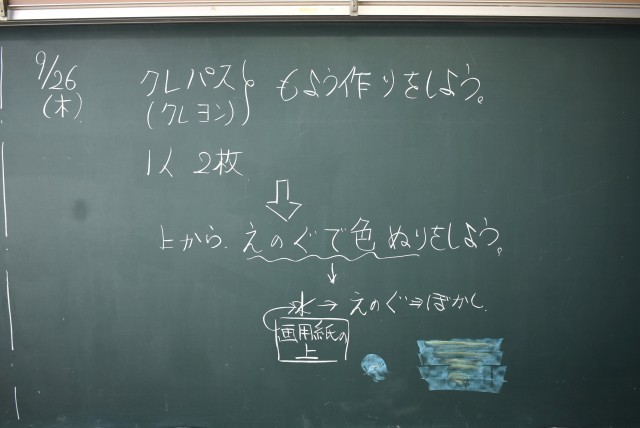 9/26
(木)
クレパスで もよう作りをしよう。
(クレヨン)
1人 2枚
⇩
上から、えのぐで色ぬりをしよう。
↓
水→えのぐ⇒ぼかし
画用紙の
上